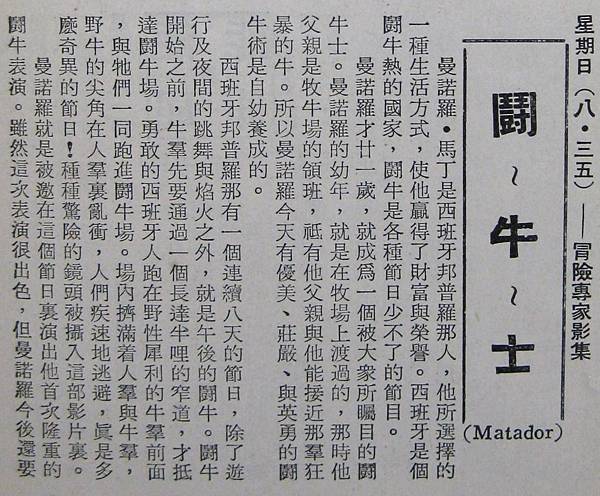 星期日(八·三五)——冒險專家影集
鬪~牛~士
(Matador)
曼諾羅·馬丁是西班牙邦普羅那人,他所選擇的
一種生活方式,使他贏得了財富與榮譽。西班牙是個
鬪牛熱的國家,鬪牛是各種節日少不了的節目。
曼諾羅才廿一歲,就成爲一個被大衆所矚目的鬪
牛士。曼諾羅的幼年,就是在牧場上渡過的,那時他
父親是牧牛場的領班,祗有他父親與他能接近那羣狂
暴的牛。所以曼諾羅今天有優美、莊嚴、與英勇的鬪
牛術是自幼養成的。
西班牙邦普羅那有一個連續八天的節日,除了遊
行及夜間的跳舞與焰火之外,就是午後的鬪牛。鬪牛
開始之前,牛羣先要通過一個長達半哩的窄道,才抵
達鬪牛場。勇敢的西班牙人跑在野性犀利的牛羣前面
,與牠們一同跑進鬪牛場。場內擠滿着人羣與牛羣,
野牛的尖角在人羣裏亂衝,人們疾速地逃避,眞是多
麽奇異的節日!種種驚險的鏡頭被攝入這部影片裏。
曼諾羅就是被邀在這個節日裏演出他首次隆重的
鬪牛表演。雖然這次表演很出色,但曼諾羅今後還要